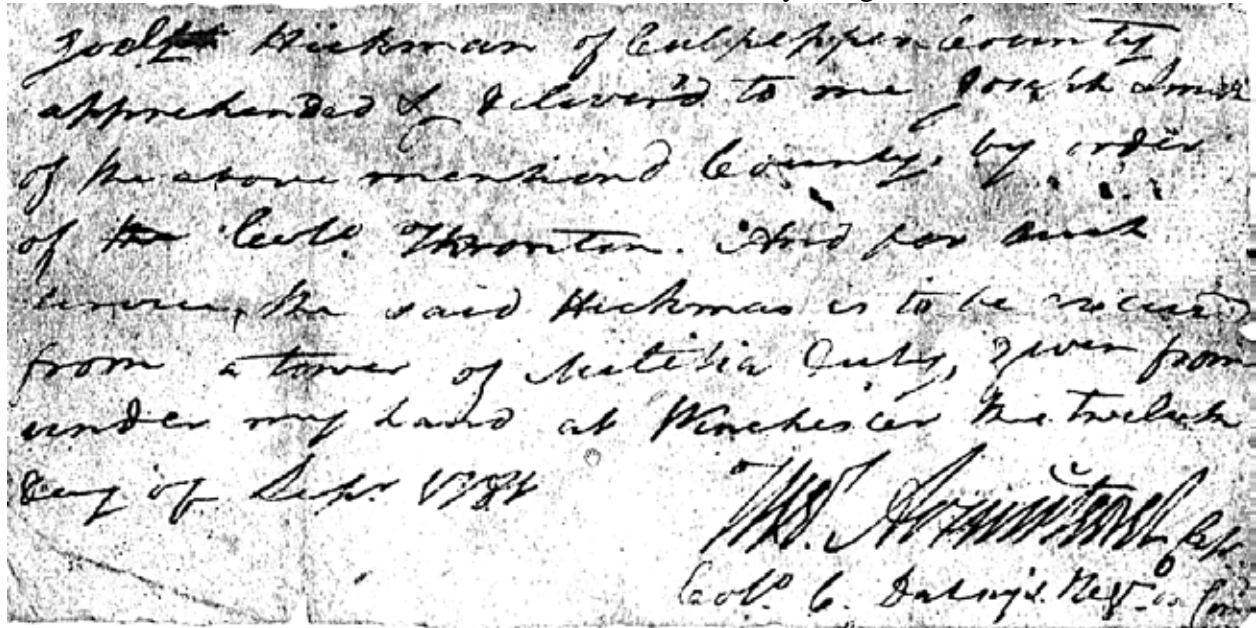 Hickman of Culpepper County
apprehended & deliver'd to me Joseph
of the above mentiond County, by order
of the Coll. Thronton. And for such
service, the said Hickman is to be
from a tower of Militia duty, given from
under my hand at Winchester the twelvth
day of Sepr. 1781
Thos. Armistead Capt
Coll. C. Dabney's Regt.